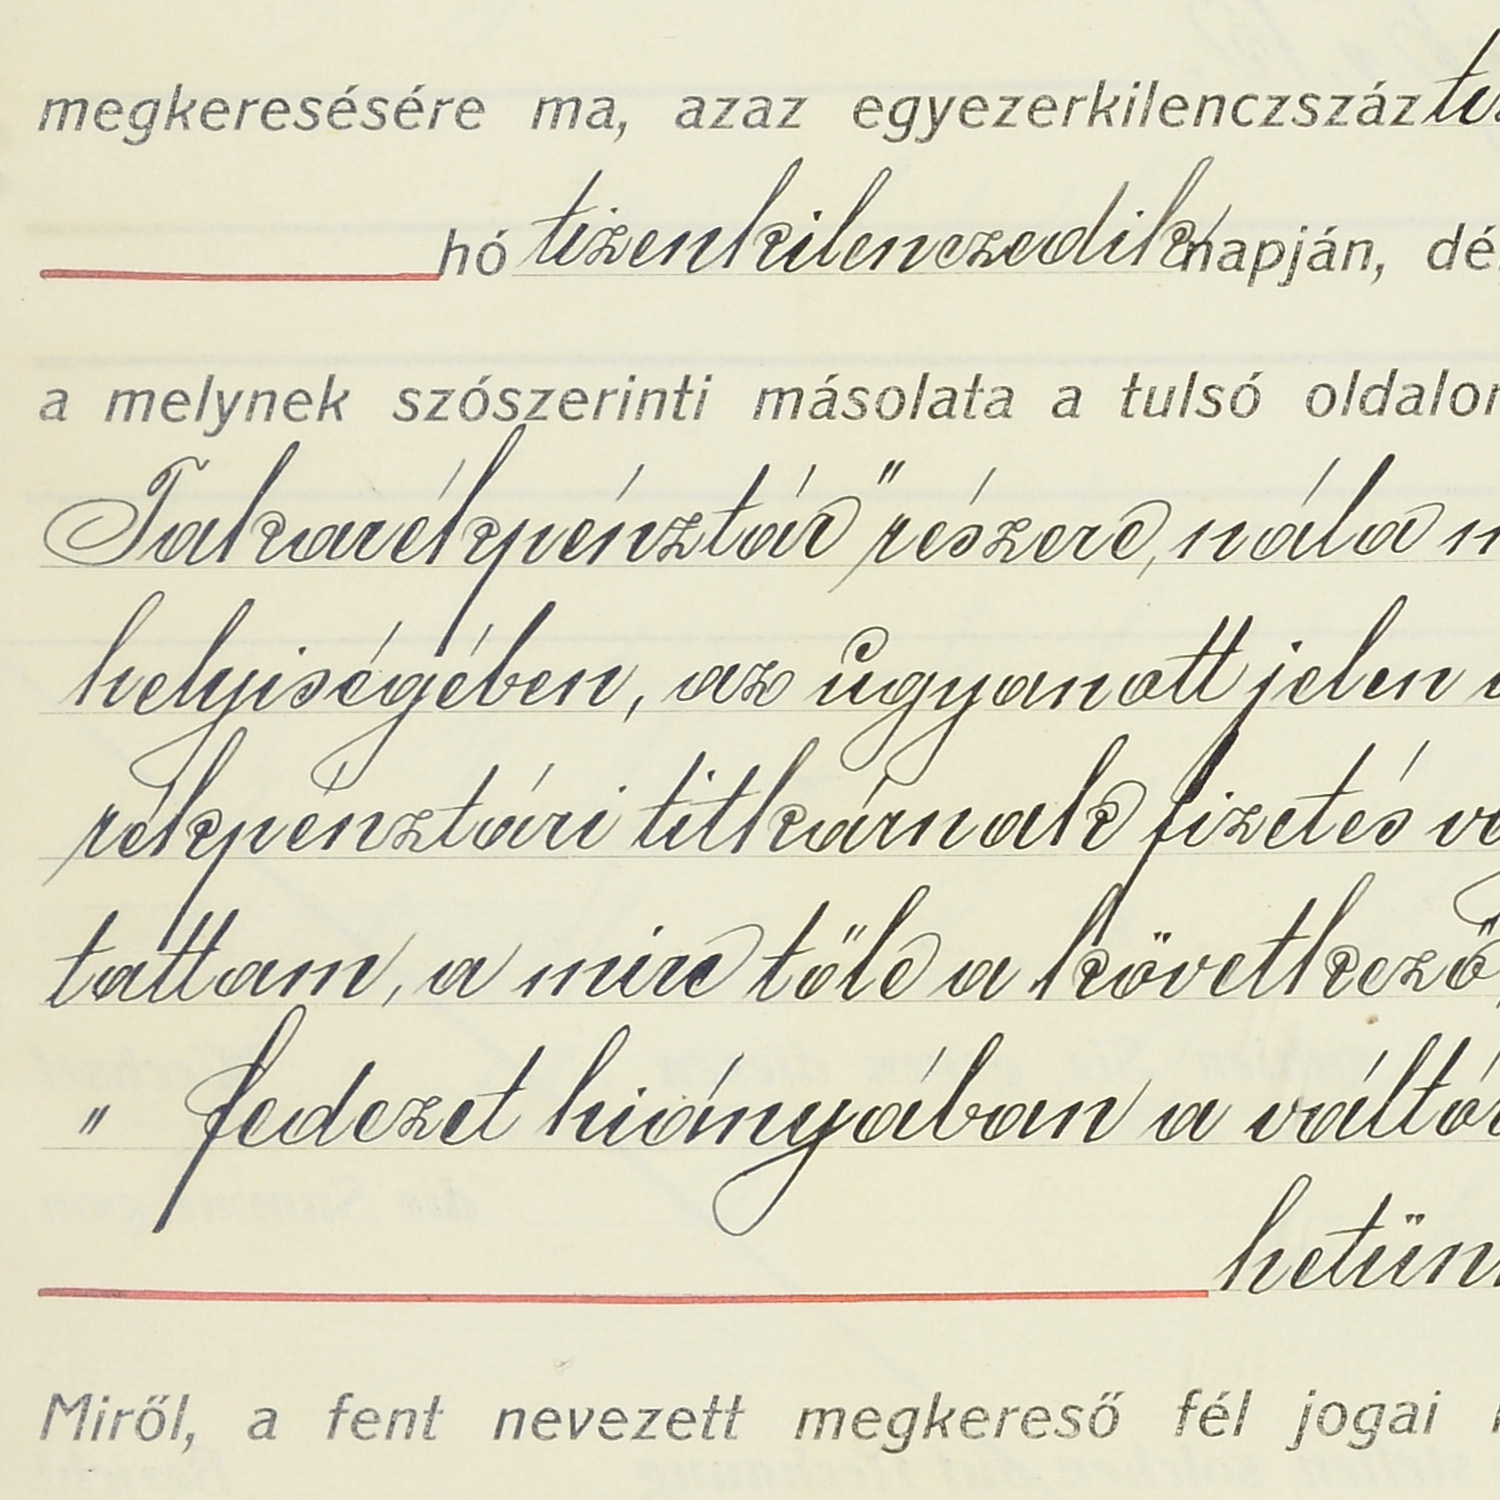 megkeresésére ma, azaz egyezerkilenczszáz
hó tizenkilenczedik napján, dé
a melynek szószerinti másolata a tulsó oldalon
Takarékpénztár" részére, nála
helyiségében, az ugyanott jelen
rékpénztári titkárnak fizetés
tattam, a mire tőle a következő
" fedezet hiányában a váltó
hetün
Miről, a fent nevezett megkereső fél jogai